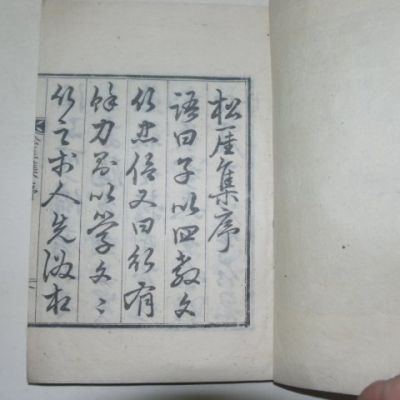 松厓集序
語曰子以四教文
行忠信又曰行有
餘力則以学文〻
行之於人先後相